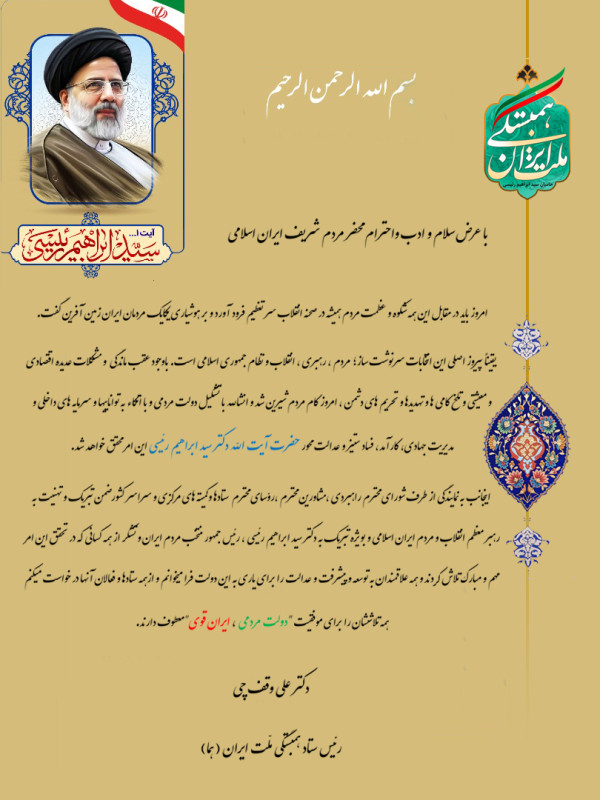 بسم الله الرحمن الرحیم
همبستگی
ملت ایران
حامیان سید ابراهیم رئیسی
آیت ا...
سید ابراهیم رئیسی
با عرض سلام و ادب و احترام محضر مردم شریف ایران اسلامی
امروز باید در مقابل این همه شکوه و عظمت مردم همیشه در صحنه انقلاب سر تعظیم فرود آورد و بر هوشیاری یکایک مردمان ایران زمین آفرین گفت.
یقیناً پیروز اصلی این انتخابات سرنوشت ساز؛ مردم ، رهبری ، انقلاب و نظام جمهوری اسلامی است. باوجود عقب ماندگی و مشکلات عدیده اقتصادی
و معیشتی و تلخ کامی ها و تهدیدها و تحریم های دشمن ، امروز کام مردم شیرین شد و انشالله با تشکیل دولت مردمی و با اتکاء به تواناییها و سرمایه های داخلی و
مدیریت جهادی، کارآمد، فساد ستیز و عدالت محور حضرت آیت الله دکتر سید ابراهیم رئیسی این امر محقق خواهد شد.
اینجانب به نمایندگی از طرف شورای محترم راهبردی ،مشاورین محترم ،رؤسای محترم ستادها و کمیته های مرکزی و سراسر کشور ضمن تبریک و تهنیت به
رهبر معظم انقلاب و مردم ایران اسلامی و بویژه تبریک به دکتر سید ابراهیم رئیسی ، رئیس جمهور منتخب مردم ایران و تشکر از همه کسانی که در تحقق این امر
مهم و مبارک تلاش کردند و همه علاقمندان به توسعه و پیشرفت و عدالت را برای یاری به این دولت فرا میخوانم و از همه ستادها و فعالان آنها درخواست میکنم
همه تلاششان را برای موفقیت "دولت مردمی ، ایران قوی" معطوف دارند.
دکتر علی وقف چی
رئیس ستاد همبستگی ملت ایران (هما)